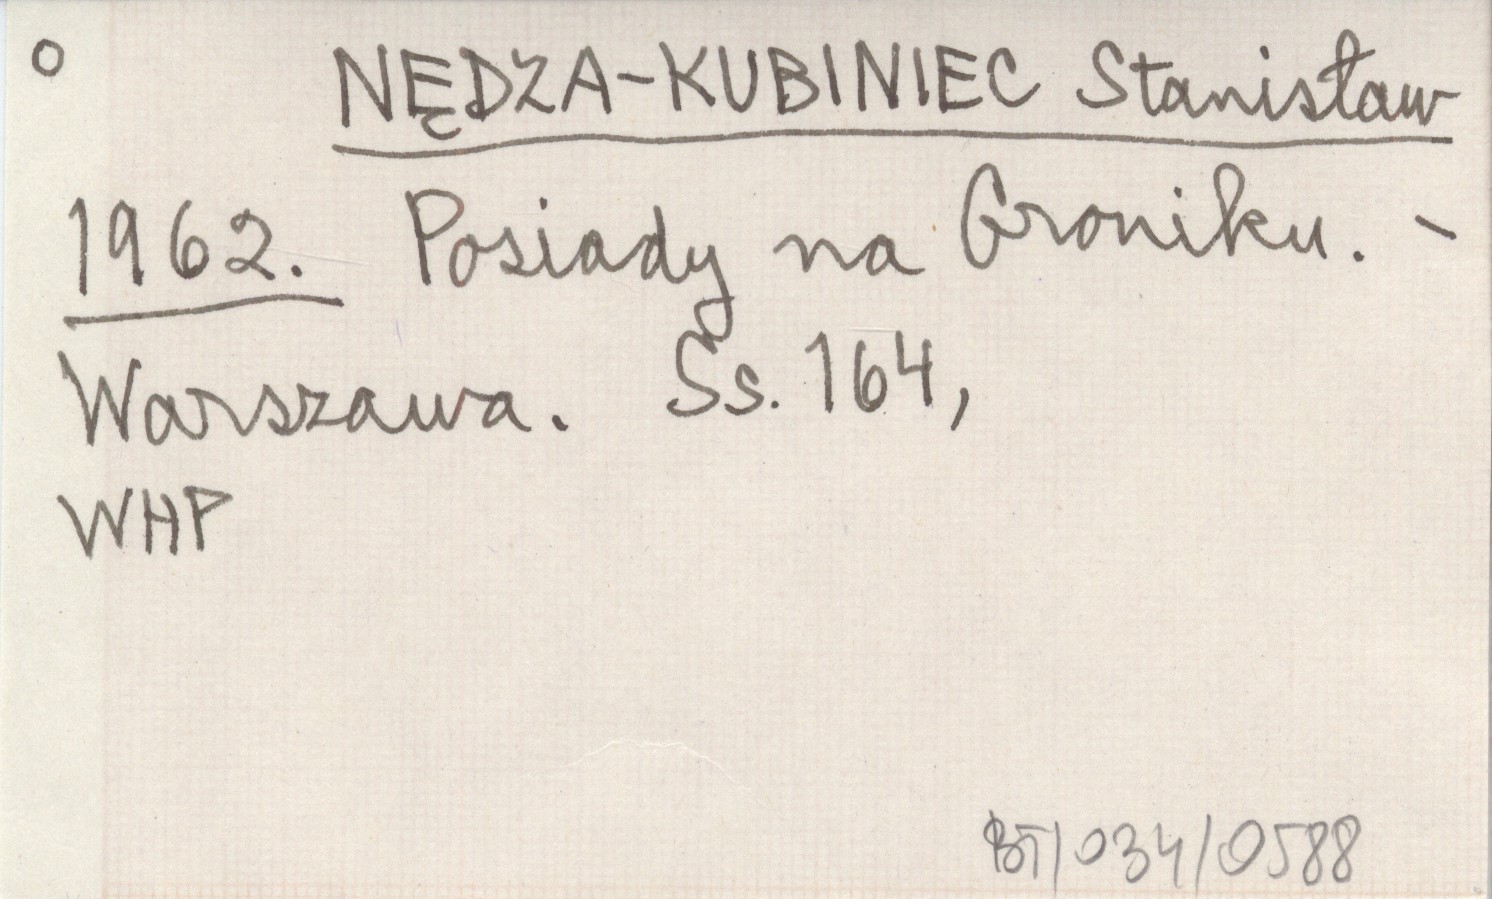 o NĘDZA-KUBINIEC Stanisław
1962. Posiady na Groniku. -
Warszawa. Ss. 164,
WHP
BT/034/0588